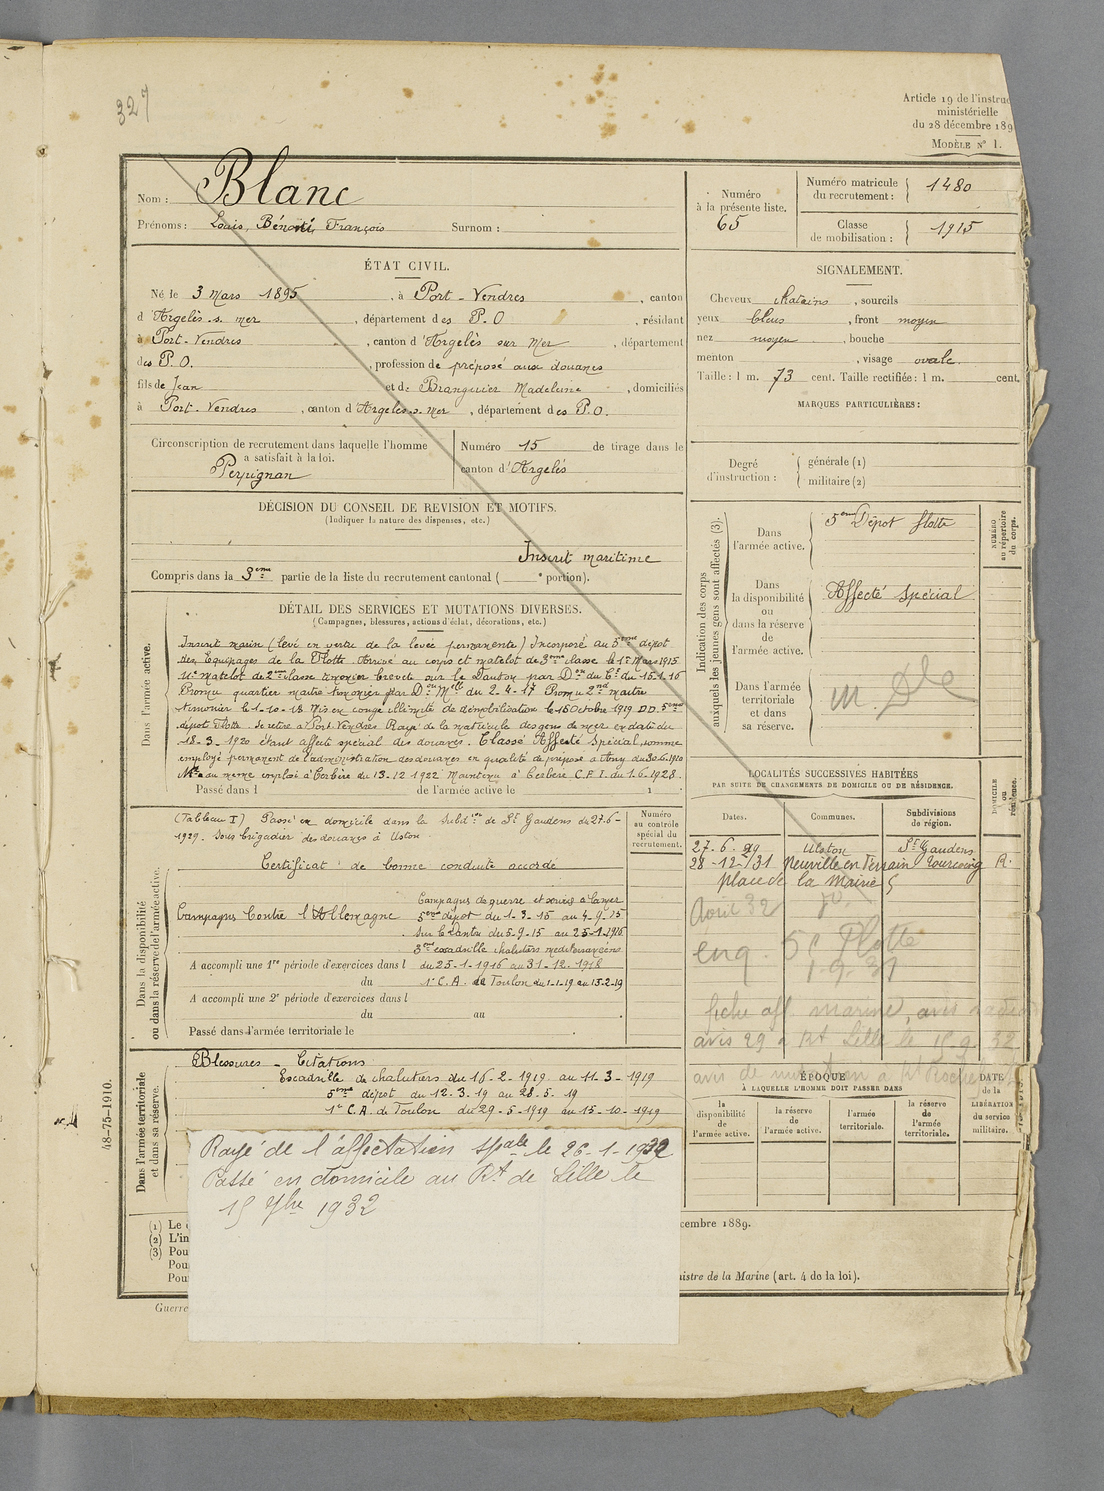 327
Article 19 de l'instruc
ministérielle
du 28 décembre 189
MODÈLE N° 1.
Nom : Blanc
Prénoms : Louis, Bénoni, François Surnom :
Numéro
à la présente liste.
65
Numéro matricule
du recrutement : 1480
Classe
de mobilisation : 1915
ÉTAT CIVIL.
Né le 3 Mars 1895, à Port-Vendres, canton
d'Argelès-s. mer, département des P.O, résidant
à Port-Vendres, canton d'Argelès sur Mer, département
des P.O., profession de préposé aux douanes
fils de Jean et de Branguier Madeleine, domiciliés
à Port-Vendres, canton d'Argelès-s-Mer, département des P.O.
SIGNALEMENT.
Cheveux chatains, sourcils
yeux bleus, front moyen
nez moyen, bouche
menton, visage ovale
Taille : 1 m. 73 cent. Taille rectifiée : 1 m. cent.
MARQUES PARTICULIÈRES :
Circonscription de recrutement dans laquelle l'homme
a satisfait à la loi.
Perpignan
Numéro 15 de tirage dans le
canton d'Argelès
Degré
d'instruction : générale (1)
militaire (2)
DÉCISION DU CONSEIL DE REVISION ET MOTIFS.
(Indiquer la nature des dispenses, etc.)
Inscrit maritime
Compris dans la 3eme partie de la liste du recrutement cantonal ( e portion).
Indication des corps
auxquels les jeunes gens sont affectés (3).
NUMÉRO
au répertoire
du corps.
Dans
l'armée active.
5eme Dépot flotte
Dans
la disponibilité
ou
dans la réserve
de
l'armée active.
Affecté spécial
Dans l'armée
territoriale
et dans
sa réserve.
DÉTAIL DES SERVICES ET MUTATIONS DIVERSES.
(Campagnes, blessures, actions d'éclat, décorations, etc.)
Dans l'armée active.
Inscrit marin (levé en vertu de la levée permanente) Incorporé au 5eme dépot
des Equipages de la Flotte Arrivé au corps et matelot de 3eme classe le 1er Mars 1915
Mt matelot de 2eme classe timonier breveté sur le Danton par Don du Ct du 15.1.16
Promu quartier maitre timonier par Don Mlle du 2-4-17 Promu 2nd maitre
timonier le 1-10-18 Mis en congé illimité de démobilisation le 15 Octobre 1919 DD. 5eme
dépot Flotte. Se retire à Port-Vendres Rayé de la matricule des gens de mer en date du
18-3-1920 étant affecté spécial des douanes. Classé Affecté Spécial, comme
employé permanent de l'administration des douanes en qualité de préposé à Any du 30-6-1920
Mté au meme emploi à Cerbère du 13-12 1922 Maintenu à Cerbère C.F.I. du 1.6-1928.
Passé dans l de l'armée active le 1 .
LOCALITÉS SUCCESSIVES HABITÉES
PAR SUITE DE CHANGEMENTS DE DOMICILE OU DE RÉSIDENCE.
DOMICILE
ou
résidence.
Dates.
Communes.
Subdivisions
de région.
27-6-29 Ulston St Gaudens
28-12-31 Neuville en Ferrain Tourcoing R.
place de la Mairie 5
Avril 32
enq. 5e Flotte
1-9-31
fiche aff marine, avis
avis 29 à Rt Lille le 15 9 32
avis de mutation à Rt
Dans la disponibilité
ou dans la réserve de l'armée active.
(Tableau I) Passé en domicile dans la Subdon de St Gaudens du 27-6-
1929. Sous brigadier des douanes à Uston.
Certificat de bonne conduite accordé
Numéro
au controle
spécial du
recrutement.
Campagnes de guerre et services à la mer
Campagne contre l'Allemagne 5eme dépot du 1-3-15 au 4-9-15
Sur le Danton du 5-9-15 au 25-1-1916
3me escadrille chalutiers mediterranéens
A accompli une 1re période d'exercices dans l du 25-1-1916 au 31-12-1918
du 1er C.A. de Toulon du 1-1-19 au 13-2-19
A accompli une 2e période d'exercices dans l
du au .
Passé dans l'armée territoriale le .
Dans l'armée territoriale
et dans sa réserve.
Blessures - Citations
Escadrille de chalutiers du 16-2-1919 au 11-3-1919
5eme dépot du 12-3.19 au 28-5-19
1er C.A. de Toulon du 29-5-1919 au 15-10-1919
Rayé de l'affectation spale le 26-1-1932
Passé en domicile au Rt de Lille le
15 7bre 1932
ÉPOQUE
À LAQUELLE L'HOMME DOIT PASSER DANS
DATE
de la
LIBÉRATION
du service
militaire.
la
disponibilité
de
l'armée active.
la réserve
de
l'armée active.
l'armée
territoriale.
la réserve
de
l'armée
territoriale.
48-75-1910.
(1) Le
(2) L'in
(3) Pou
Pou
Pou
cembre 1889.
nistre de la Marine (art. 4 de la loi).
Guerre